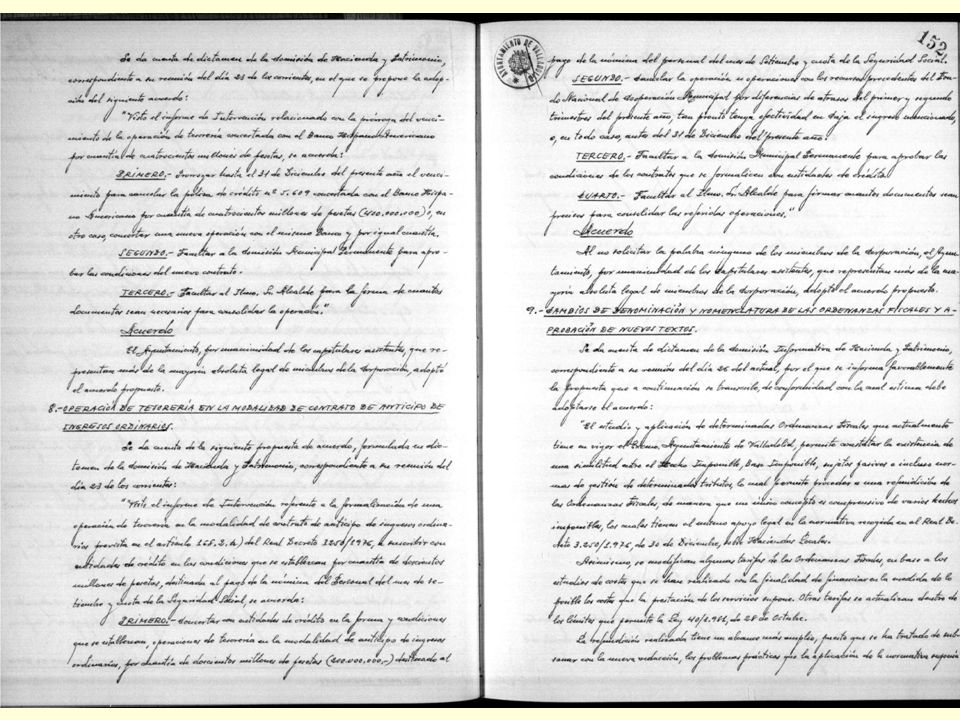 Se da cuenta de dictamen de la Comisión de Hacienda y Patrimonio,
correspondiente a su reunión del día 23 de los corrientes, en el que se propone la adop-
ción del siguiente acuerdo:
"Visto el informe de Intervención relacionado con la prórroga del venci-
miento de la operación de tesorería concertada con el Banco Hispano Americano
por cuantía de cuatrocientos millones de pesetas, se acuerda:
PRIMERO.- Prorrogar hasta el 31 de Diciembre del presente año el venci-
miento para cancelar la póliza de crédito nº 5.609 concertada con el Banco Hispa-
no Americano por cuantía de cuatrocientos millones de pesetas (400.000.000) o, en
otro caso, concertar una nueva operación con el mismo Banco y por igual cuantía.
SEGUNDO.- Facultar a la Comisión Municipal Permanente para apro-
bar las condiciones del nuevo contrato.
TERCERO.- Facultar al Ilmo. Sr. Alcalde para la firma de cuantos
documentos sean necesarios para consolidar la operación."
Acuerdo
El Ayuntamiento, por unanimidad de los capitulares asistentes, que re-
presentan más de la mayoría absoluta legal de miembros de la Corporación, adoptó
el acuerdo propuesto.
8.- OPERACIÓN DE TESORERÍA EN LA MODALIDAD DE CONTRATO DE ANTICIPO DE
INGRESOS ORDINARIOS.
Se da cuenta de la siguiente propuesta de acuerdo, formulada en dic-
tamen de la Comisión de Hacienda y Patrimonio, correspondiente a su reunión del
día 23 de los corrientes:
"Visto el informe de Intervención referente a la formalización de una
operación de tesorería en la modalidad de contrato de anticipo de ingresos ordina-
rios prevista en el artículo 165.2.a) del Real Decreto 3250/1976, a suscribir con
entidades de crédito en las condiciones que se establezcan por cuantía de doscientos
millones de pesetas, destinada al pago de la nómina del Personal del mes de se-
tiembre y cuota de la Seguridad Social, se acuerda:
PRIMERO.- Concertar con entidades de crédito en la forma y condiciones
que se establezcan, operaciones de tesorería en la modalidad de anticipo de ingresos
ordinarios, por cuantía de doscientos millones de pesetas (200.000.000,-) destinado al
AYUNTAMIENTO DE VALLADOLID
152
pago de la nómina del personal del mes de Setiembre y cuota de la Seguridad Social.
SEGUNDO.- Cancelar la operación u operaciones con los recursos procedentes del Fon-
do Nacional de Cooperación Municipal por diferencias de atrasos del primer y segundo
trimestres del presente año, tan pronto tenga efectividad en Caja el ingreso mencionado,
o, en todo caso, antes del 31 de Diciembre del presente año.
TERCERO.- Facultar a la Comisión Municipal Permanente para aprobar las
condiciones de los contratos que se formalicen con entidades de crédito.
CUARTO.- Facultar al Ilmo. Sr. Alcalde para firmar cuantos documentos sean
precisos para consolidar las referidas operaciones."
Acuerdo
Al no solicitar la palabra ninguno de los miembros de la Corporación, el Ayun-
tamiento, por unanimidad de los Capitulares asistentes, que representan más de la ma-
yoría absoluta legal de miembros de la Corporación, adoptó el acuerdo propuesto.
9.- CAMBIOS DE DENOMINACIÓN Y NOMENCLATURA DE LAS ORDENANZAS FISCALES Y A-
PROBACIÓN DE NUEVOS TEXTOS.
Se da cuenta de dictamen de la Comisión Informativa de Hacienda y Patrimonio,
correspondiente a su reunión del día 26 del actual, por el que se informa favorablemente
la propuesta que a continuación se transcribe, de conformidad con la cual estima debe
adoptarse el acuerdo:
"El estudio y aplicación de determinadas Ordenanzas Fiscales que actualmente
tiene en vigor el Excmo. Ayuntamiento de Valladolid, permite constatar la existencia de
una similitud entre el Hecho Imponible, Base Imponible, sujetos pasivos e incluso nor-
mas de gestión de determinados tributos, lo cual permite proceder a una refundición de
las Ordenanzas Fiscales, de manera que un único concepto es comprensivo de varios hechos
imponibles, los cuales tienen el mismo apoyo legal en la normativa recogida en el Real De-
creto 3.250/1.976, de 30 de Diciembre, sobre Haciendas Locales.
Asimismo, se modifican algunas tarifas de las Ordenanzas Fiscales, en base a los
estudios de costes que se han realizado con la finalidad de financiar en la medida de lo
posible los costes que la prestación de los servicios supone. Otras tarifas se actualizan dentro de
los límites que permite la Ley 40/1.981, de 28 de Octubre.
La refundición realizada tiene un alcance más amplio, puesto que se ha tratado de sub-
sanar con la nueva redacción, los problemas prácticos que la aplicación de la normativa suponía